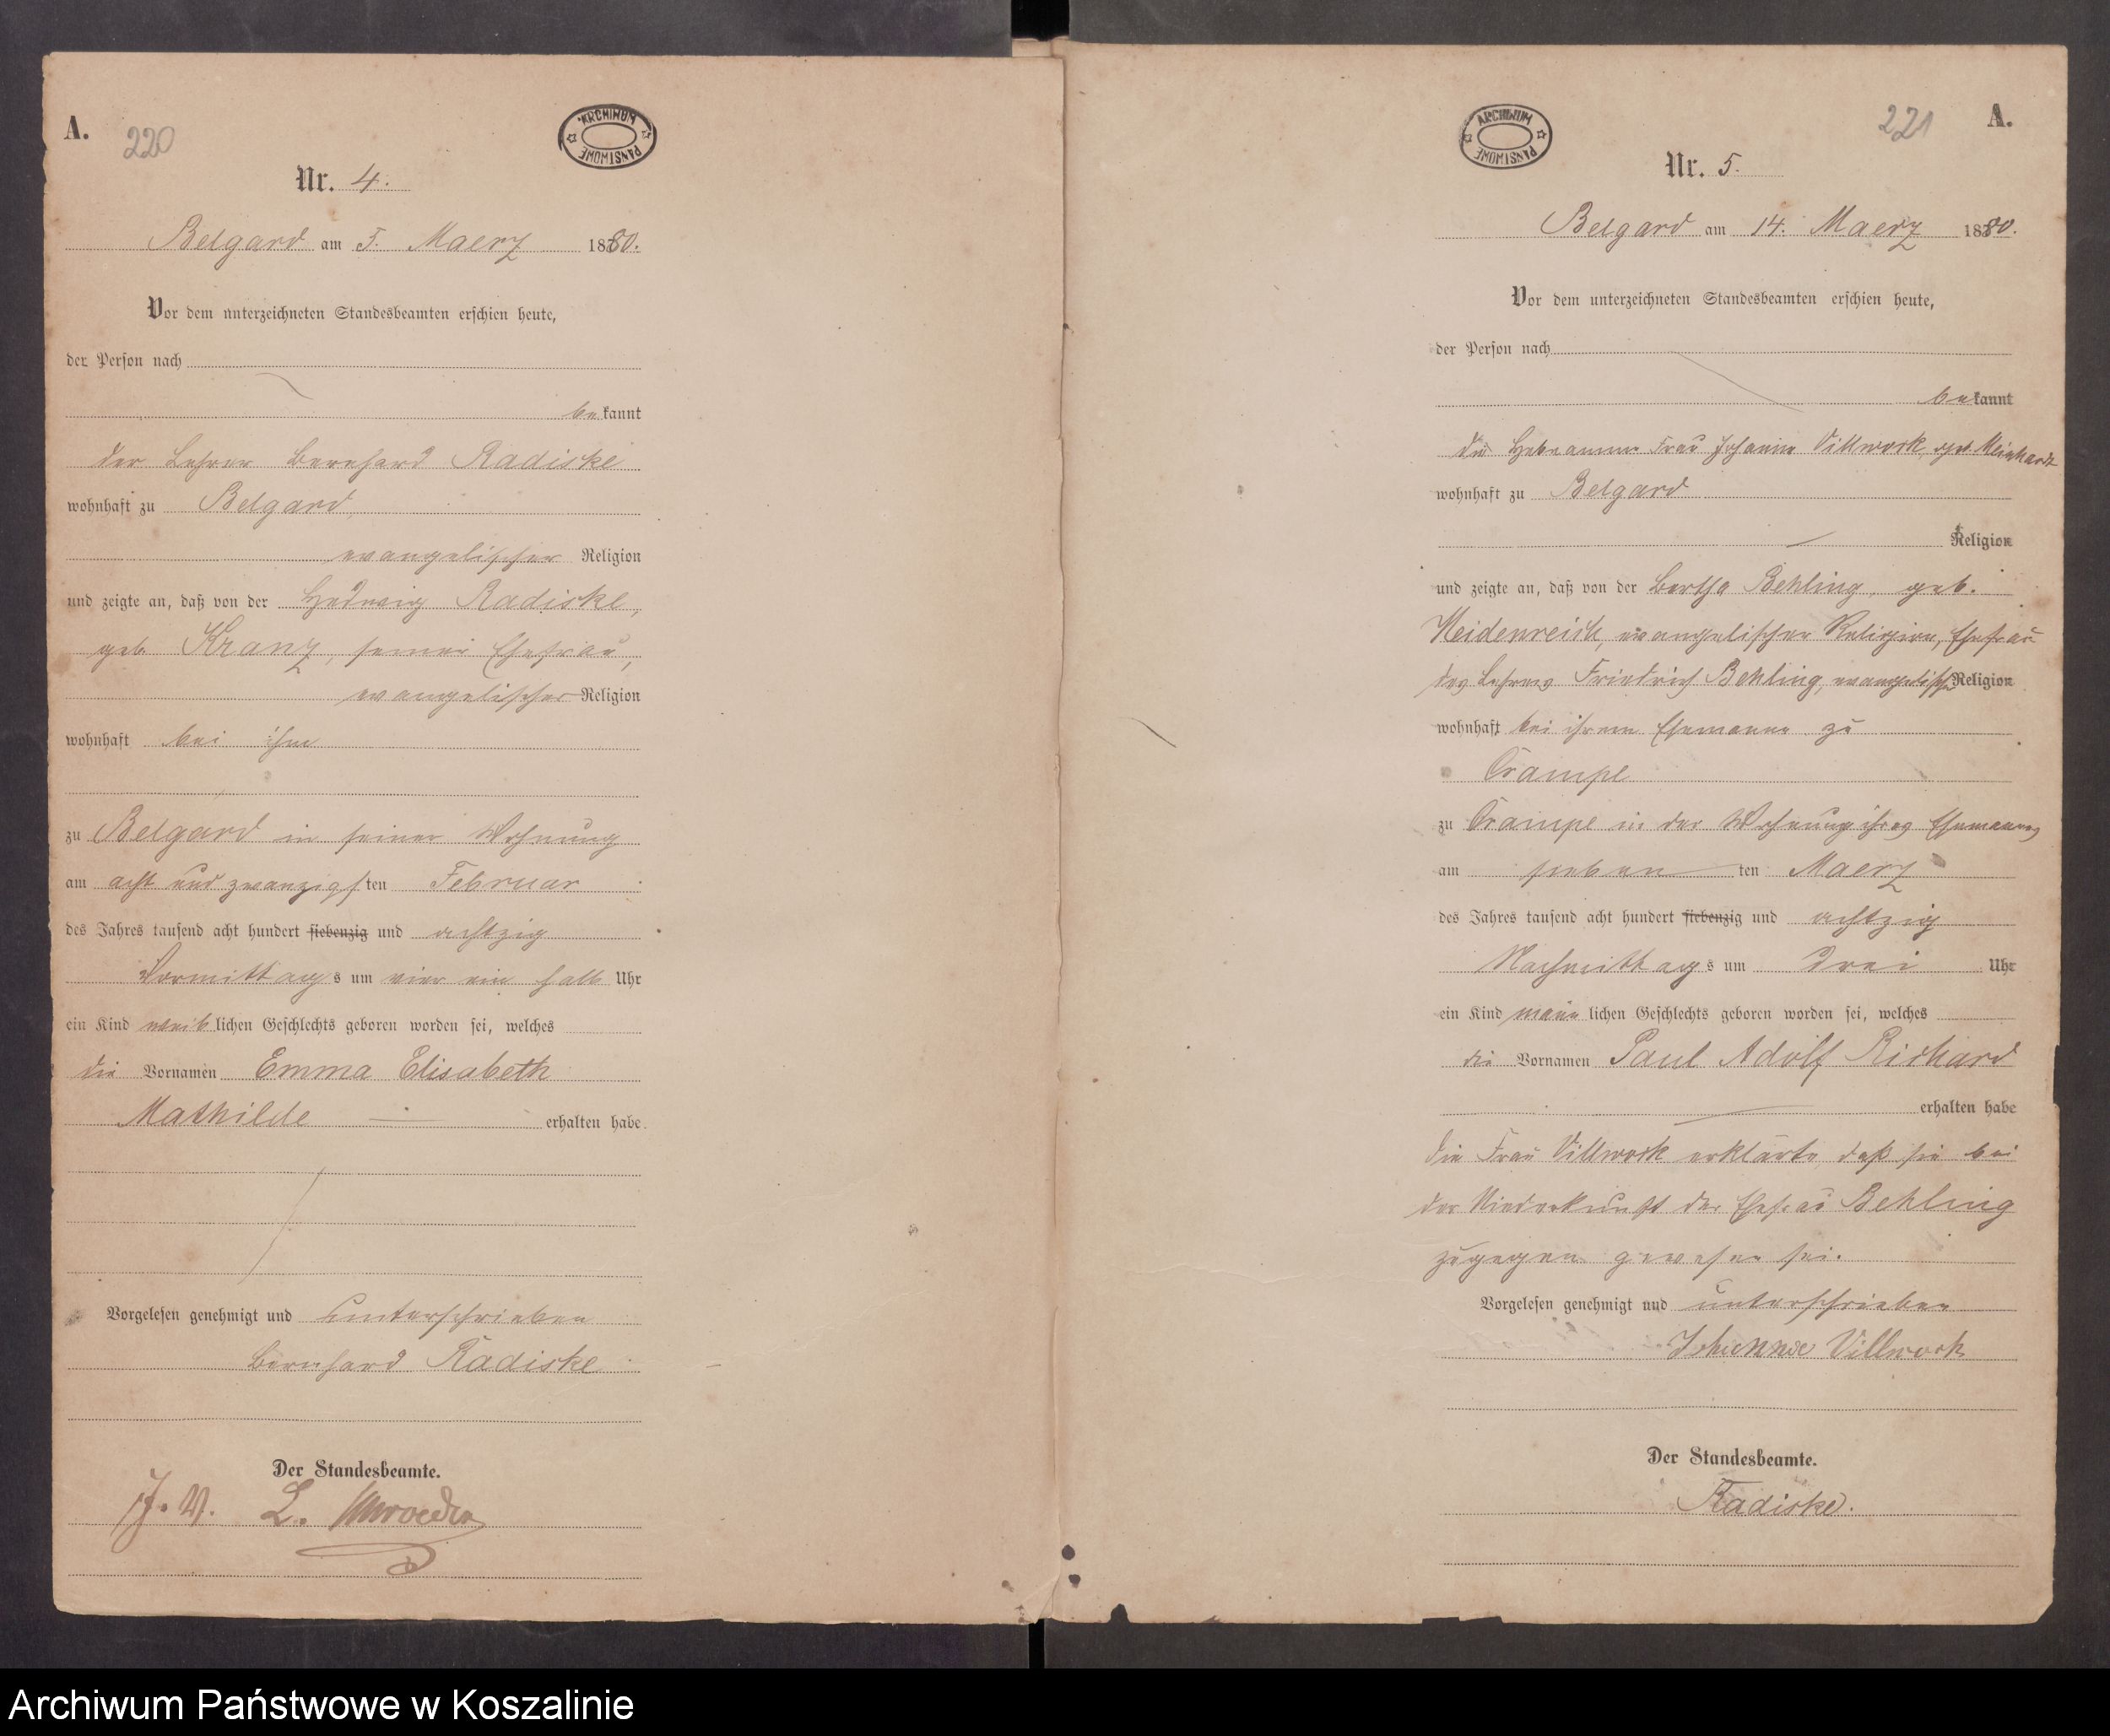 A.
220
ARCHIWUM PAŃSTWOWE
Nr. 4.
Belgard am 5. Maerz 1880.
Vor dem unterzeichneten Standesbeamten erschien heute,
der Person nach
bekannt
der Lehrer Bernhard Radiske
wohnhaft zu Belgard,
evangelischer Religion
und zeigte an, daß von der Hedwig Radiske,
geb Kranz, seiner Ehefrau,
evangelischer Religion
wohnhaft bei ihm
zu Belgard in seiner Wohnung
am acht und zwanzigsten Februar
des Jahres tausend acht hundert siebenzig und achtzig
Vormittags um vier ein halb Uhr
ein Kind weiblichen Geschlechts geboren worden sei, welches
die Vornamen Emma Elisabeth
Mathilde erhalten habe.
Vorgelesen genehmigt und unterschrieben
Bernhard Radiske
Der Standesbeamte.
J. V. L.
ARCHIWUM PAŃSTWOWE
221
A.
Nr. 5.
Belgard am 14. Maerz 1880.
Vor dem unterzeichneten Standesbeamten erschien heute,
der Person nach
bekannt
die Hebeamme Frau Johanne Villwock, geb Meinhardt
wohnhaft zu Belgard
Religion
und zeigte an, daß von der Bertha Behling, geb.
Heidenreich, evangelischer Religion, Ehefrau
des Lehrers Friedrich Behling, evangelischer Religion
wohnhaft bei ihrem Ehemanne zu
Crampe
zu Crampe in der Wohnung ihres Ehemannes
am siebenten Maerz
des Jahres tausend acht hundert siebenzig und achtzig
Nachmittags um drei Uhr
ein Kind männlichen Geschlechts geboren worden sei, welches
die Vornamen Paul Adolf Richard
erhalten habe
Die Frau Villwock erklärte, daß sie bei
der Niederkunft der Ehefrau Behling
zugegen gewesen sei.
Vorgelesen genehmigt und unterschrieben
Johanne Villwock
Der Standesbeamte.
Radiske.
Archiwum Państwowe w Koszalinie